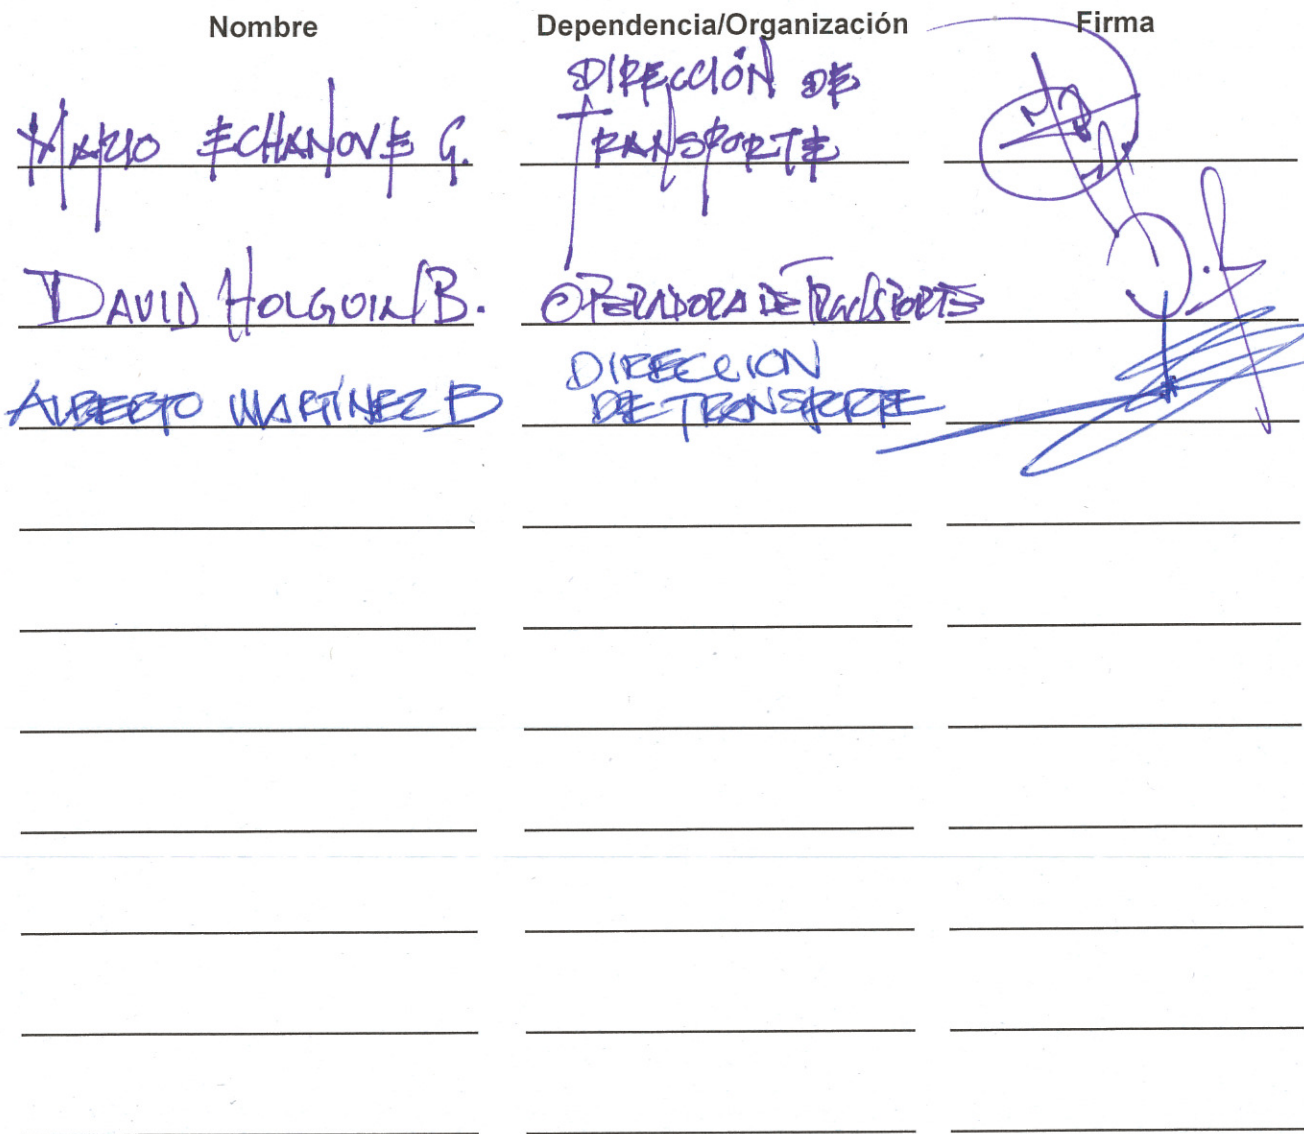 Nombre Dependencia/Organización Firma
MARIO ECHANOVE G. DIRECCIÓN DE
TRANSPORTE
DAVID HOLGUIN B. OPERADORA DE TRANSPORTE
ALBERTO MARTÍNEZ B DIRECCION
DE TRANSPORTE